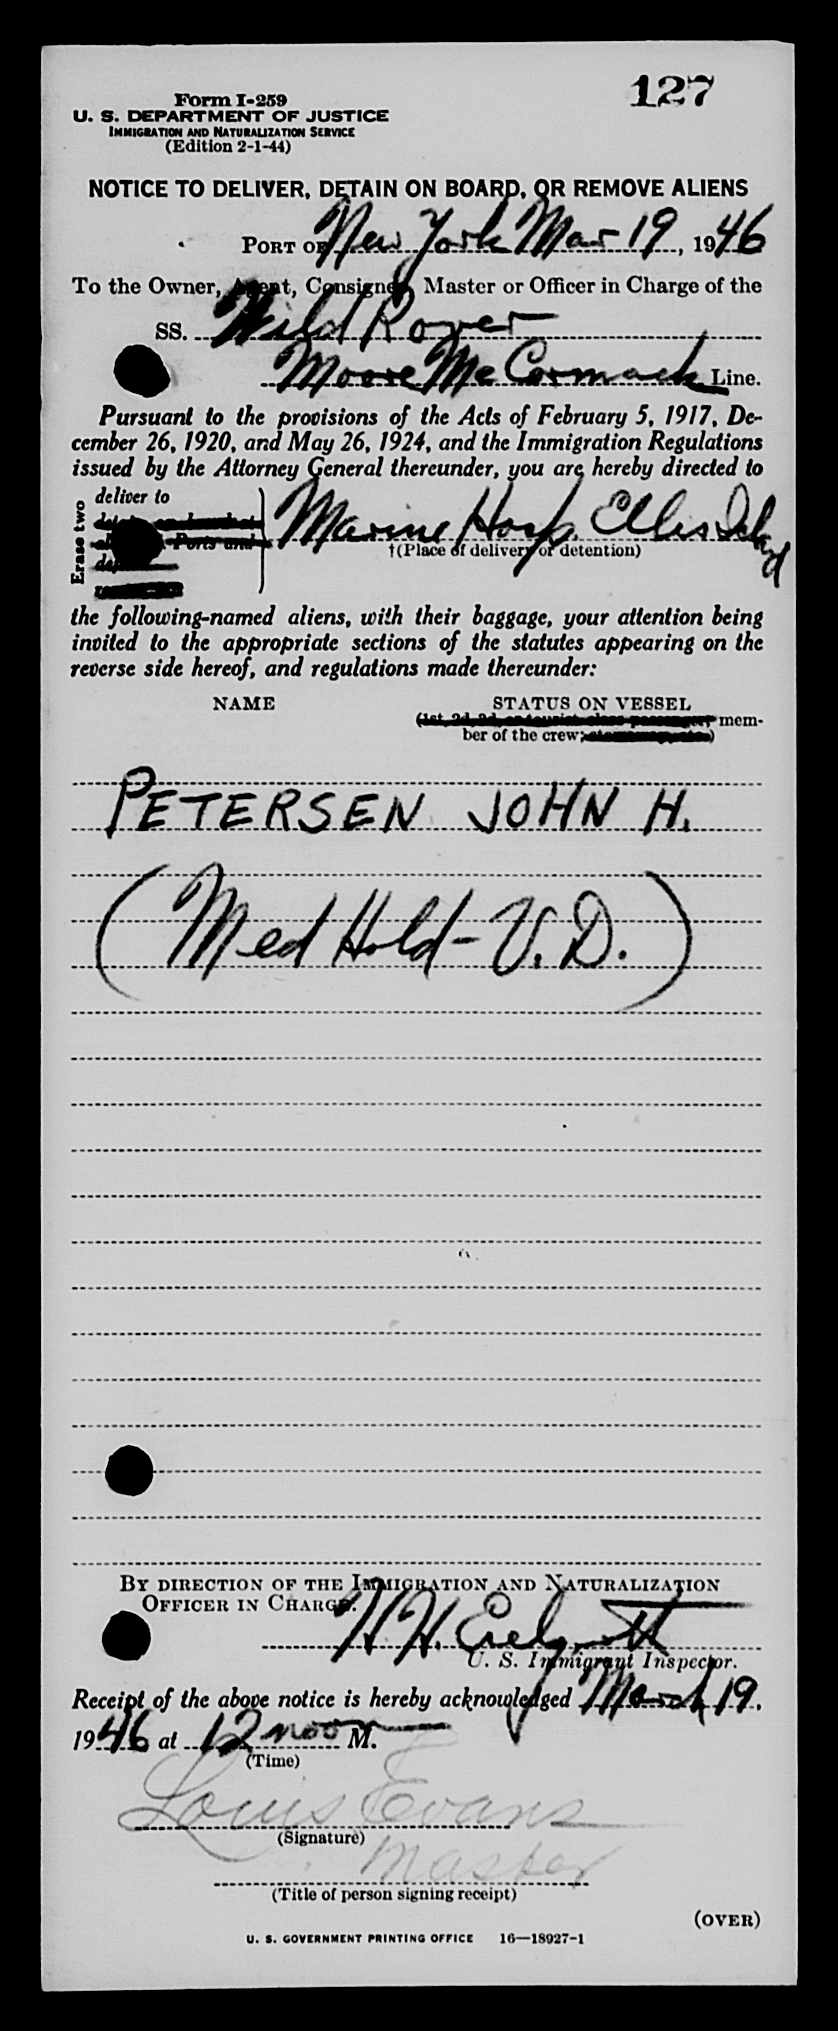 127
Form I-259
U. S. DEPARTMENT OF JUSTICE
IMMIGRATION AND NATURALIZATION SERVICE
(Edition 2-1-44)
NOTICE TO DELIVER, DETAIN ON BOARD, OR REMOVE ALIENS
PORT OF New York Mar 19, 1946
To the Owner, Agent, Consignee, Master or Officer in Charge of the
SS. Wild Rover
Moore McCormack Line.
Pursuant to the provisions of the Acts of February 5, 1917, De-
cember 26, 1920, and May 26, 1924, and the Immigration Regulations
issued by the Attorney General thereunder, you are hereby directed to
Erase two
deliver to
Ports and
Marine Hosp. Ellis Island
†(Place of delivery or detention)
the following-named aliens, with their baggage, your attention being
invited to the appropriate sections of the statutes appearing on the
reverse side hereof, and regulations made thereunder:
NAME STATUS ON VESSEL
(1st, 2d, 3d, or tourist class passenger, mem-
ber of the crew;
PETERSEN JOHN H.
(Med Hold - V.D.)
BY DIRECTION OF THE IMMIGRATION AND NATURALIZATION
OFFICER IN CHARGE.
H. H.
U. S. Immigrant Inspector.
Receipt of the above notice is hereby acknowledged March 19,
1946 at 12 noon M.
(Time)
Louis Evans
(Signature)
Master
(Title of person signing receipt)
(OVER)
U. S. GOVERNMENT PRINTING OFFICE 16—18927-1